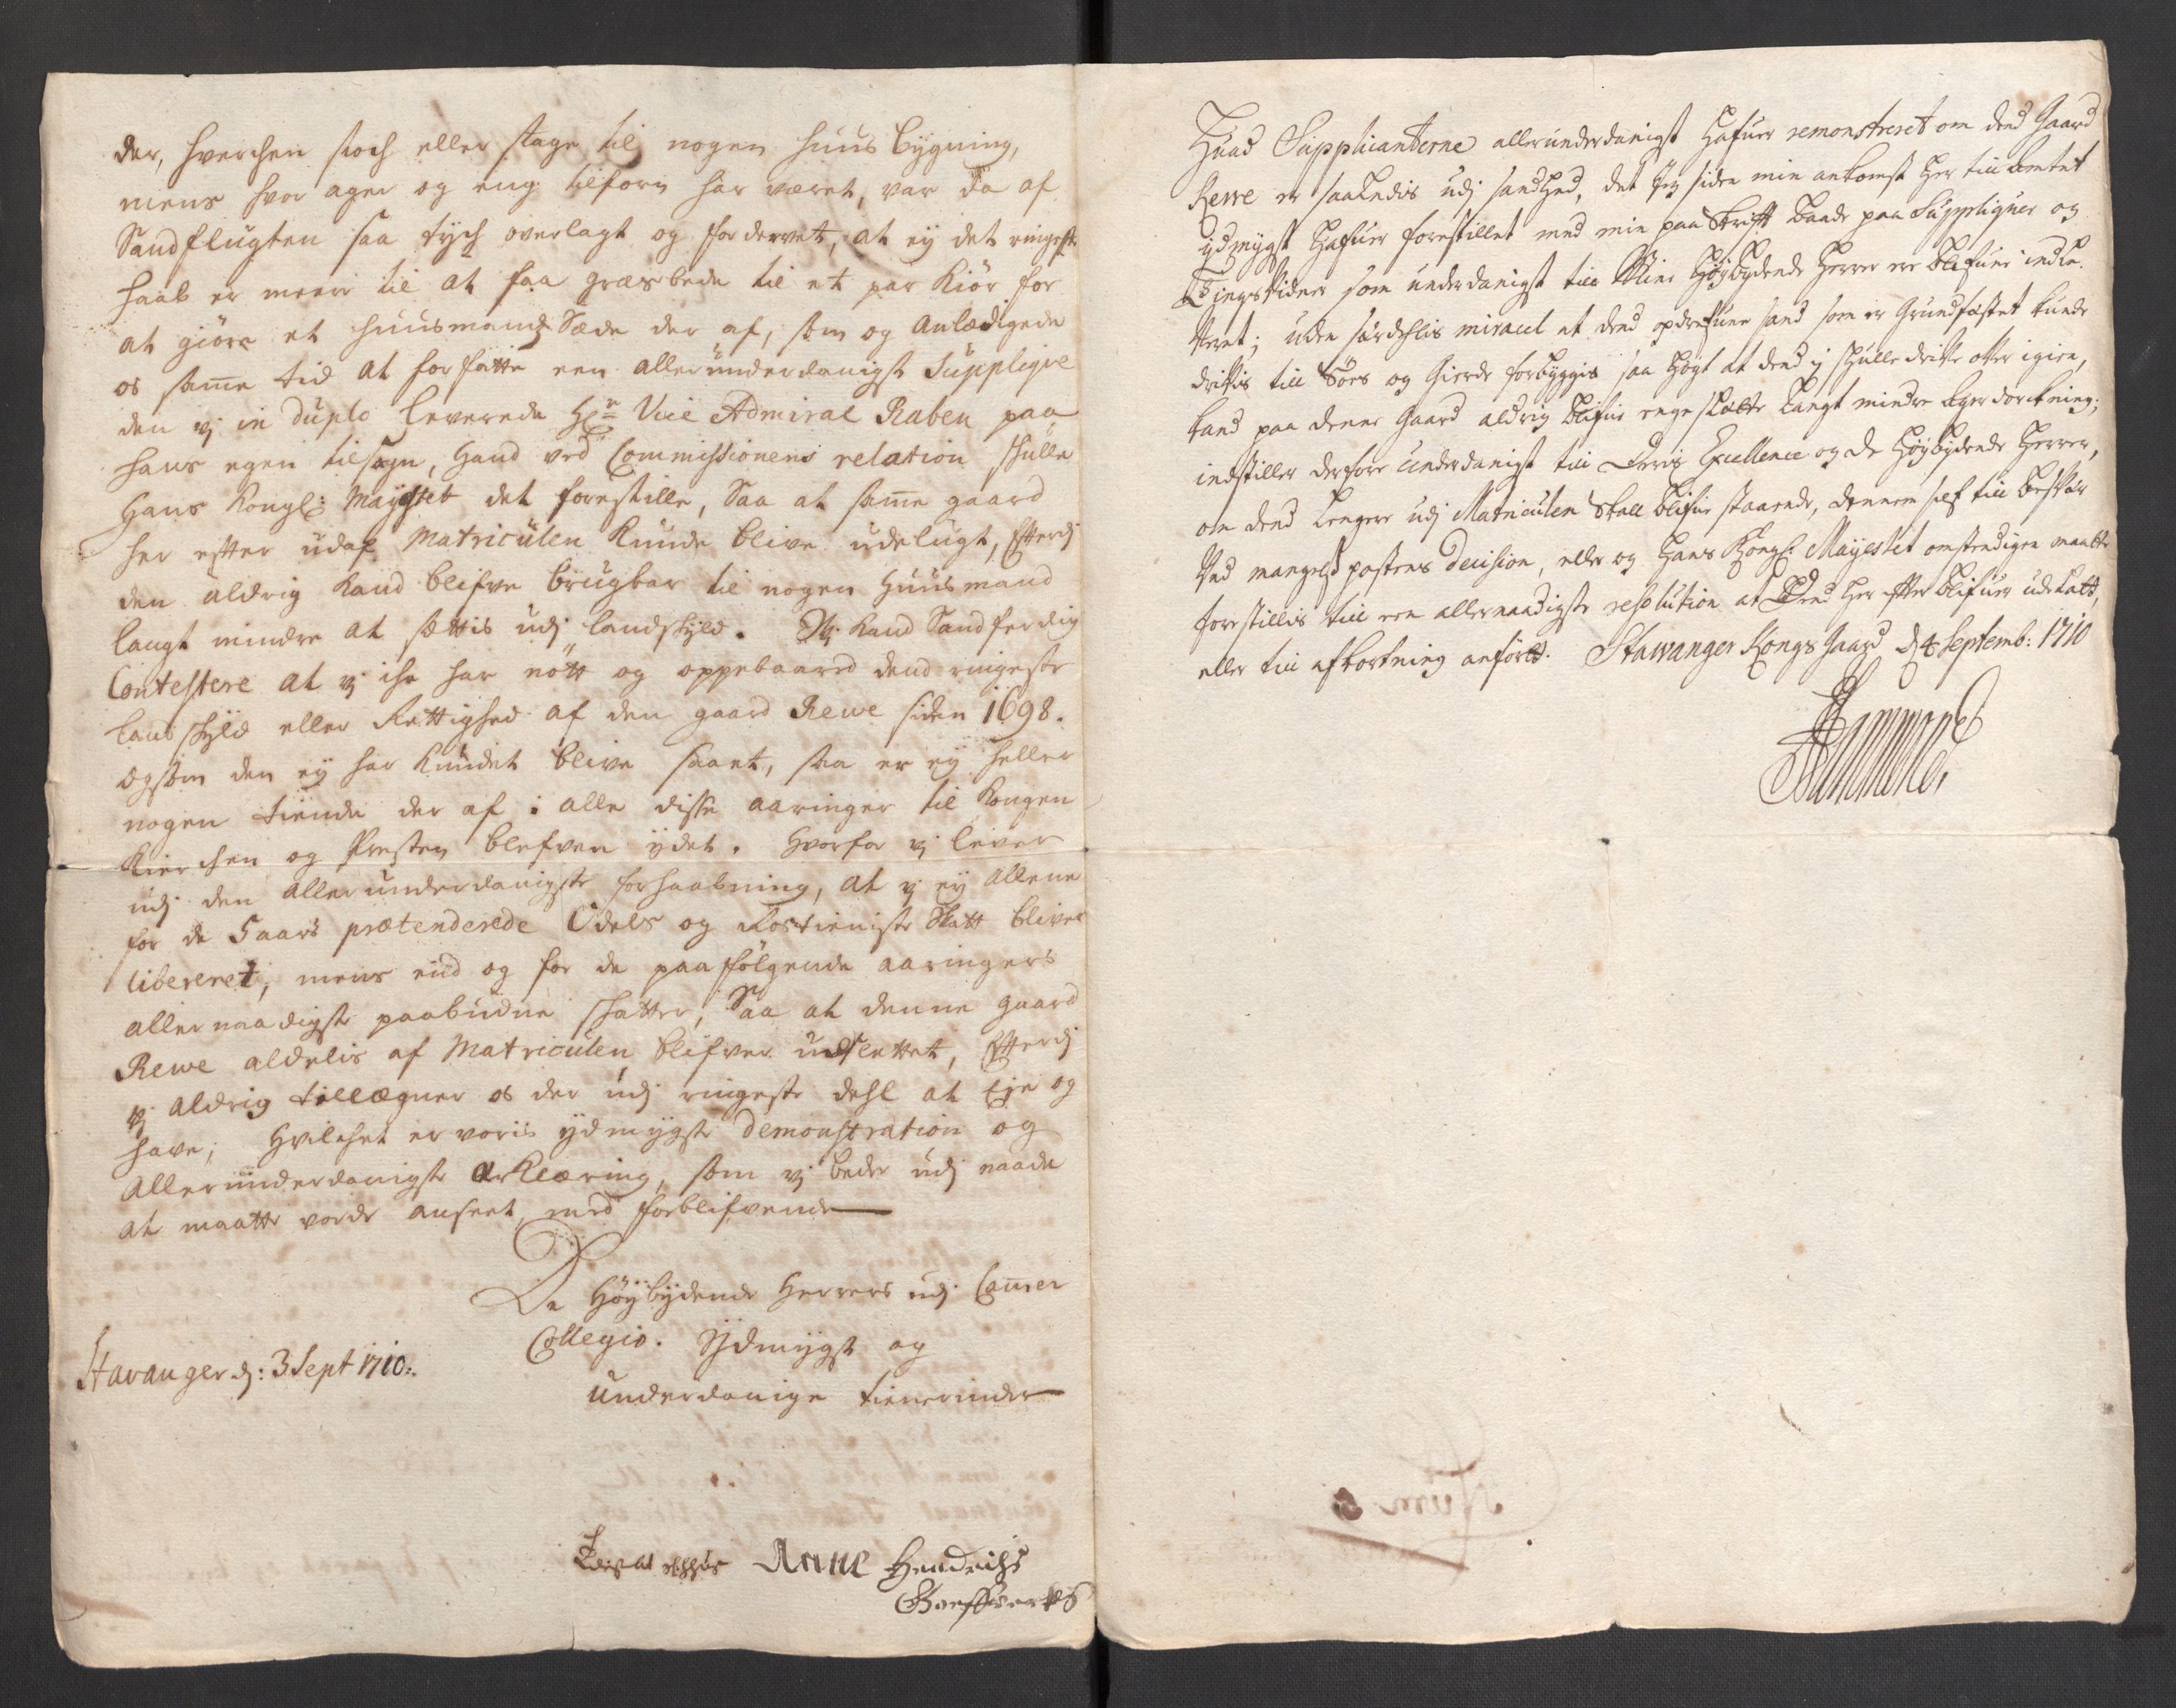 der, hverchen stoch eller stage til nogen huus bygning,
mens hvor ager og eng tilforn har været, var da af
Sandflugten saa tych overlagt og fordervet, at ey det ringeste
haab er meere til at faa græsbede til et par Kiör for
at giöre et huusmands Sæde der af, som og anlædigede
os samme tid at forfatte een allerunderdanigst Supplique
den vj in duplo leverede Hr Vice Admiral Raben paa
hans egen tilsagn, hand ved Commissionens relation skulle
Hans Kongl: Mayestet det forestille, Saa at samme gaard
her efter udaf Matriculen kunde blive udelugt, Efterdj
den aldrig kand blifve brugbar til nogen huusmand
langt mindre at settis udj landskyld. Vj kand Sandferdig
Contestere at vj iche har nött og oppebaaret dend ringeste
landskyld eller Rettighed af den gaard Rewe siden 1698.
Ogsom den ey har kundet blive saaet, saa er ey heller
nogen tiende der af i alle disse aaringer til Kongen
Kierchen og Presten blefven ydet. hvorfor vj lever
udj den allerunderdanigste forhaabning, at vj ey allene
for de 5 aars prætenderede Odels og Rostieniste Skatt bliver
libereret, mens end og for de paafølgende aaringers
allernaadigste paabudne skatter, Saa at denne gaard
Rewe aldelis af Matriculen blifver udslettet, Efterdj
vj aldrig tillægner os der udj ringeste dehl at Eje og
have; Hvilchet er voris ydmygste demonstration og
allerunderdanigste Erklæring, som vj beder udj naade
at maatte vorde anseet, med forblifvende
De Höybydende Herrers udj Cammer
Collegio. Ydmygst og
underdanige tienerinder
Stavanger dj: 3 Sept 1710.
Anne Hendrichs
Hvad Supplicanterne allerunderdanigst hafuer remonstreret om dend Gaard
Rewe er saaledis udj sandhed, det jeg siden min ankomst her till Embtet
ydmygst hafuer forestillet med min paaskrifft baade paa Suppliquer og
Tingsvidner som underdanigst till Mine Höybydende Herrer ere blefuen indle-
veret; uden særdehlis miracul at dend opdrefuen sand som er Grundfæstet kunde
drifvis till Söes og Gierde forbyggis saa högt at dend ej skulle drifve ofver igien,
kand paa denne Gaard aldrig blifve enge slætte langt mindre Agerdyrkning;
indstiller derfore underdanigst till Deris Excellence og De Höybydende Herrer,
om dend lengere udj Matriculen skall blifve staaende, dennem self till besvær
ved mangels posters decision, eller og Hans Kongl: Mayestet omstendigen maatte
forestillis till een allernaadigste resolution at Dend her effter blifuer udelatt,
eller till afkortning anfört. Stawanger Kongs Gaard d 4 Septemb: 1710